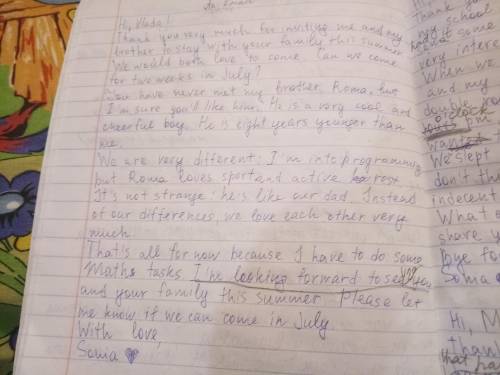 An email
Hi, Vlada!
Thank you very much for inviting me and my
brother to stay with your family this summer.
We would both love to come. Can we come
for two weeks in July?
You have never met my brother, Roma, but
I'm sure you'd like him. He is a very cool and
cheerful boy. He is eight years younger than
me.
We are very different: I'm into programming
but Roma loves sport and active
It's not strange: he's like our dad. Instead
of our differences, we love each other very
much.
That's all for now because I have to do some
Maths tasks. I'm looking forward to see you
and your family this summer. Please let
me know if we can come in July.
With love,
Sonia
Hi,
thank you
school
some
very intere
When we
and my
double
o'clock
I'm
want
We slept
don't th
indecent
What
share y
bye fo
Sonia
Hi, M
thank
that